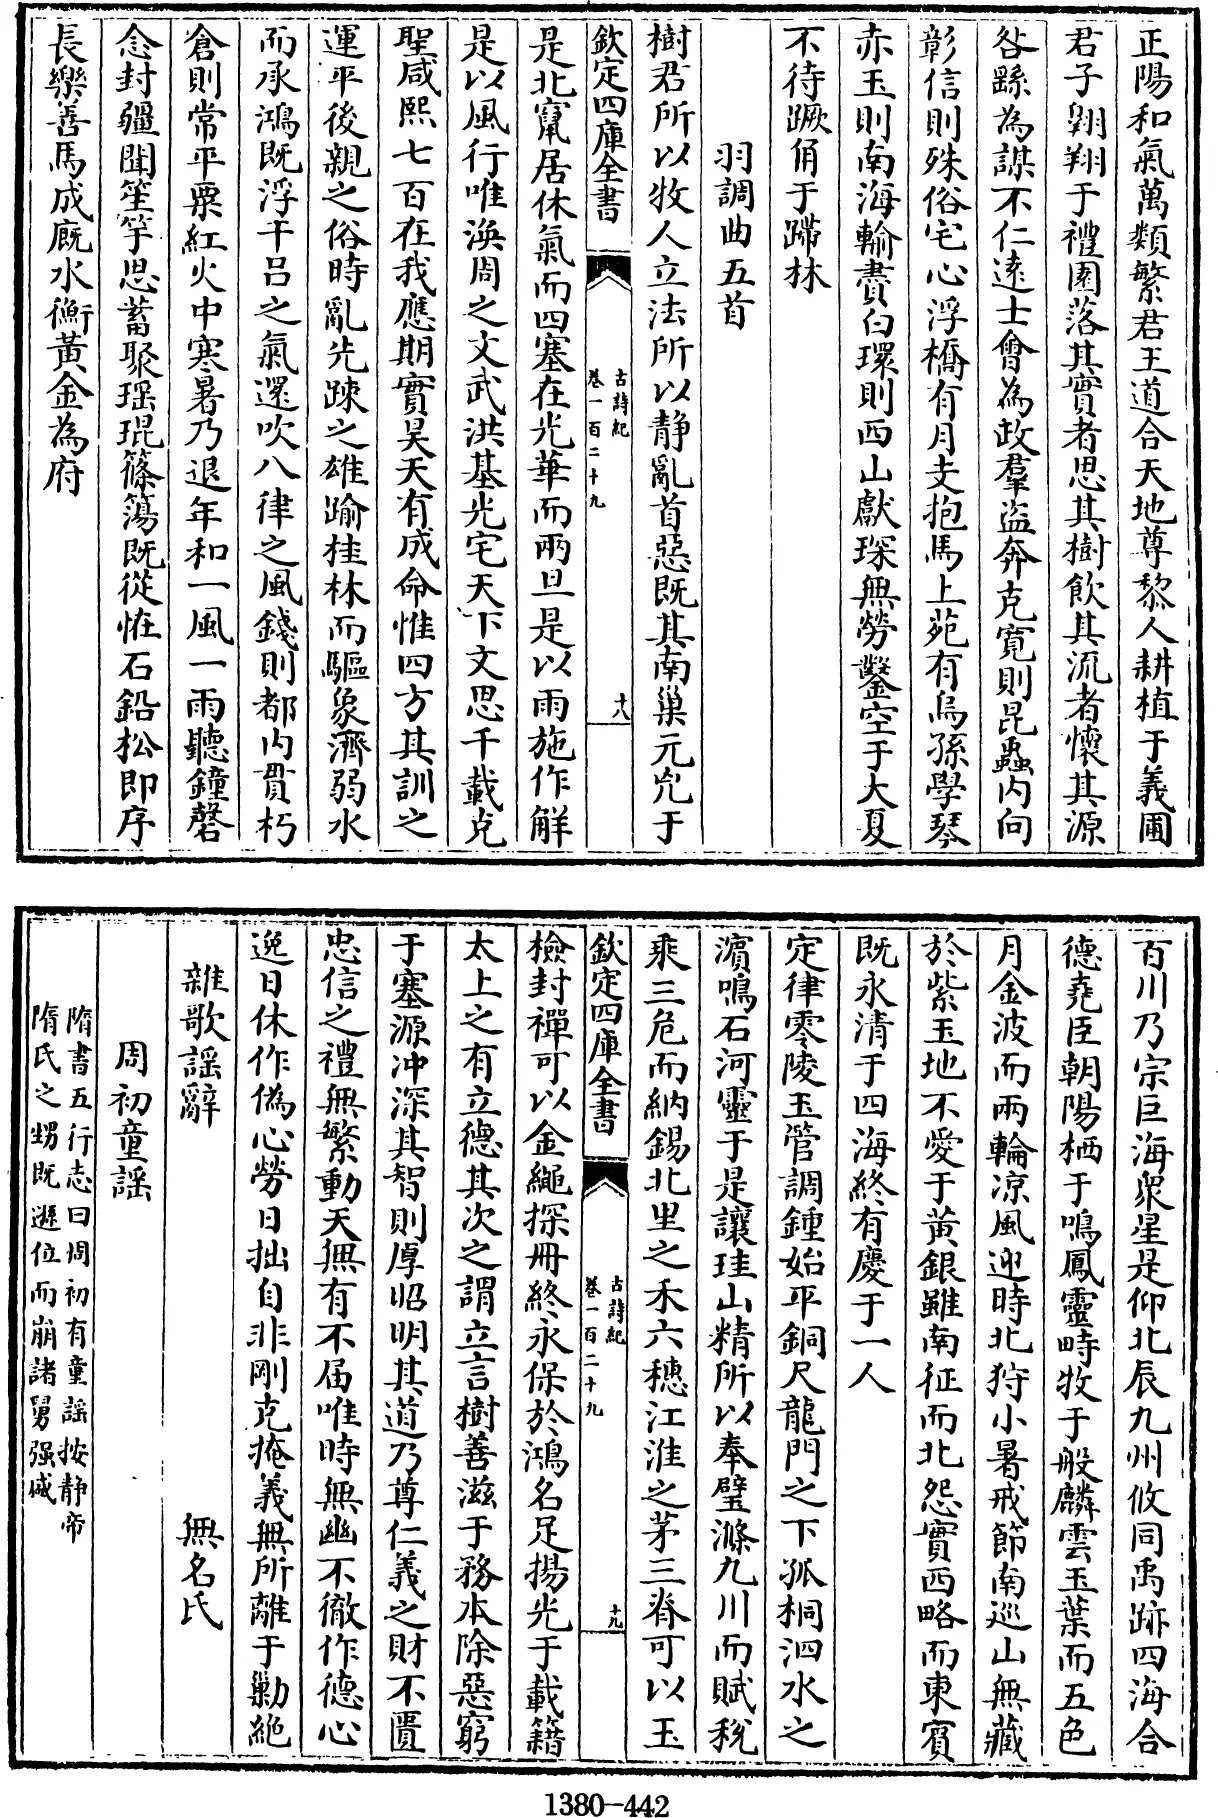 正陽和氣萬類繁君王道合天地尊黎人耕植于義圃
君子翱翔于禮園落其實者思其樹飲其流者懷其源
咎繇為謀不仁遠士會為政羣盜奔克寛則昆蟲内向
彰信則殊俗宅心浮橋有月支抱馬上苑有烏孫學琴
赤玉則南海輸賮白環則西山獻琛無勞鑿空于大夏
不待蹶角于蹛林
羽調曲五首
樹君所以牧人立法所以静亂首惡既其南巢元兇于
欽定四庫全書
古詩紀
卷一百二十九
十八
是北竄居休氣而四塞在光華而兩旦是以雨施作解
是以風行唯渙周之文武洪基光宅天下文思千載克
聖咸熙七百在我應期實昊天有成命惟四方其訓之
運平後親之俗時亂先疎之雄踰桂林而驅象濟弱水
而承鴻既浮干吕之氣還吹八律之風錢則都内貫朽
倉則常平粟紅火中寒暑乃退年和一風一雨聽鐘磬
念封疆聞笙竽思蓄聚瑶琨篠簜既從恠石鉛松即序
長樂善馬成廐水衡黄金為府
百川乃宗巨海衆星是仰北辰九州攸同禹跡四海合
德堯臣朝陽栖于鳴鳳靈畤牧于般麟雲玉葉而五色
月金波而兩輪凉風迎時北狩小暑戒節南巡山無藏
於紫玉地不愛于黄銀雖南征而北怨實西略而東賓
既永清于四海終有慶于一人
定律零陵玉管調鍾始平銅尺龍門之下孤桐泗水之
濵鳴石河靈于是讓珪山精所以奉璧滌九川而賦税
乘三危而納錫北里之禾六穗江淮之茅三脊可以玉
欽定四庫全書
古詩紀
卷一百二十九
十九
檢封禪可以金繩探冊終永保於鴻名足揚光于載籍
太上之有立德其次之謂立言樹善滋于務本除惡窮
于塞源冲深其智則厚昭明其道乃尊仁義之財不匱
忠信之禮無繁動天無有不届唯時無幽不徹作德心
逸日休作偽心勞日拙自非剛克掩義無所離于勦絶
雜歌謡辭
無名氏
周初童謡
隋書五行志曰周初有童謡按静帝
隋氏之甥既遜位而崩諸舅强盛
1380-442